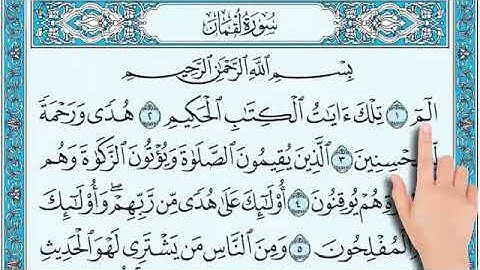 سُورَةُ لُقْمَانَ
بِسْمِ اللَّهِ الرَّحْمَٰنِ الرَّحِيمِ
الٓمٓ ١ تِلْكَ ءَايَٰتُ الْكِتَٰبِ الْحَكِيمِ ٢ هُدًى وَرَحْمَةً
لِّلْمُحْسِنِينَ ٣ الَّذِينَ يُقِيمُونَ الصَّلَوٰةَ وَيُؤْتُونَ الزَّكَوٰةَ وَهُم
هُمْ يُوقِنُونَ ٤ أُو۟لَٰٓئِكَ عَلَىٰ هُدًى مِّن رَّبِّهِمْ ۖ وَأُو۟لَٰٓئِكَ
الْمُفْلِحُونَ ٥ وَمِنَ النَّاسِ مَن يَشْتَرِى لَهْوَ الْحَدِيثِ